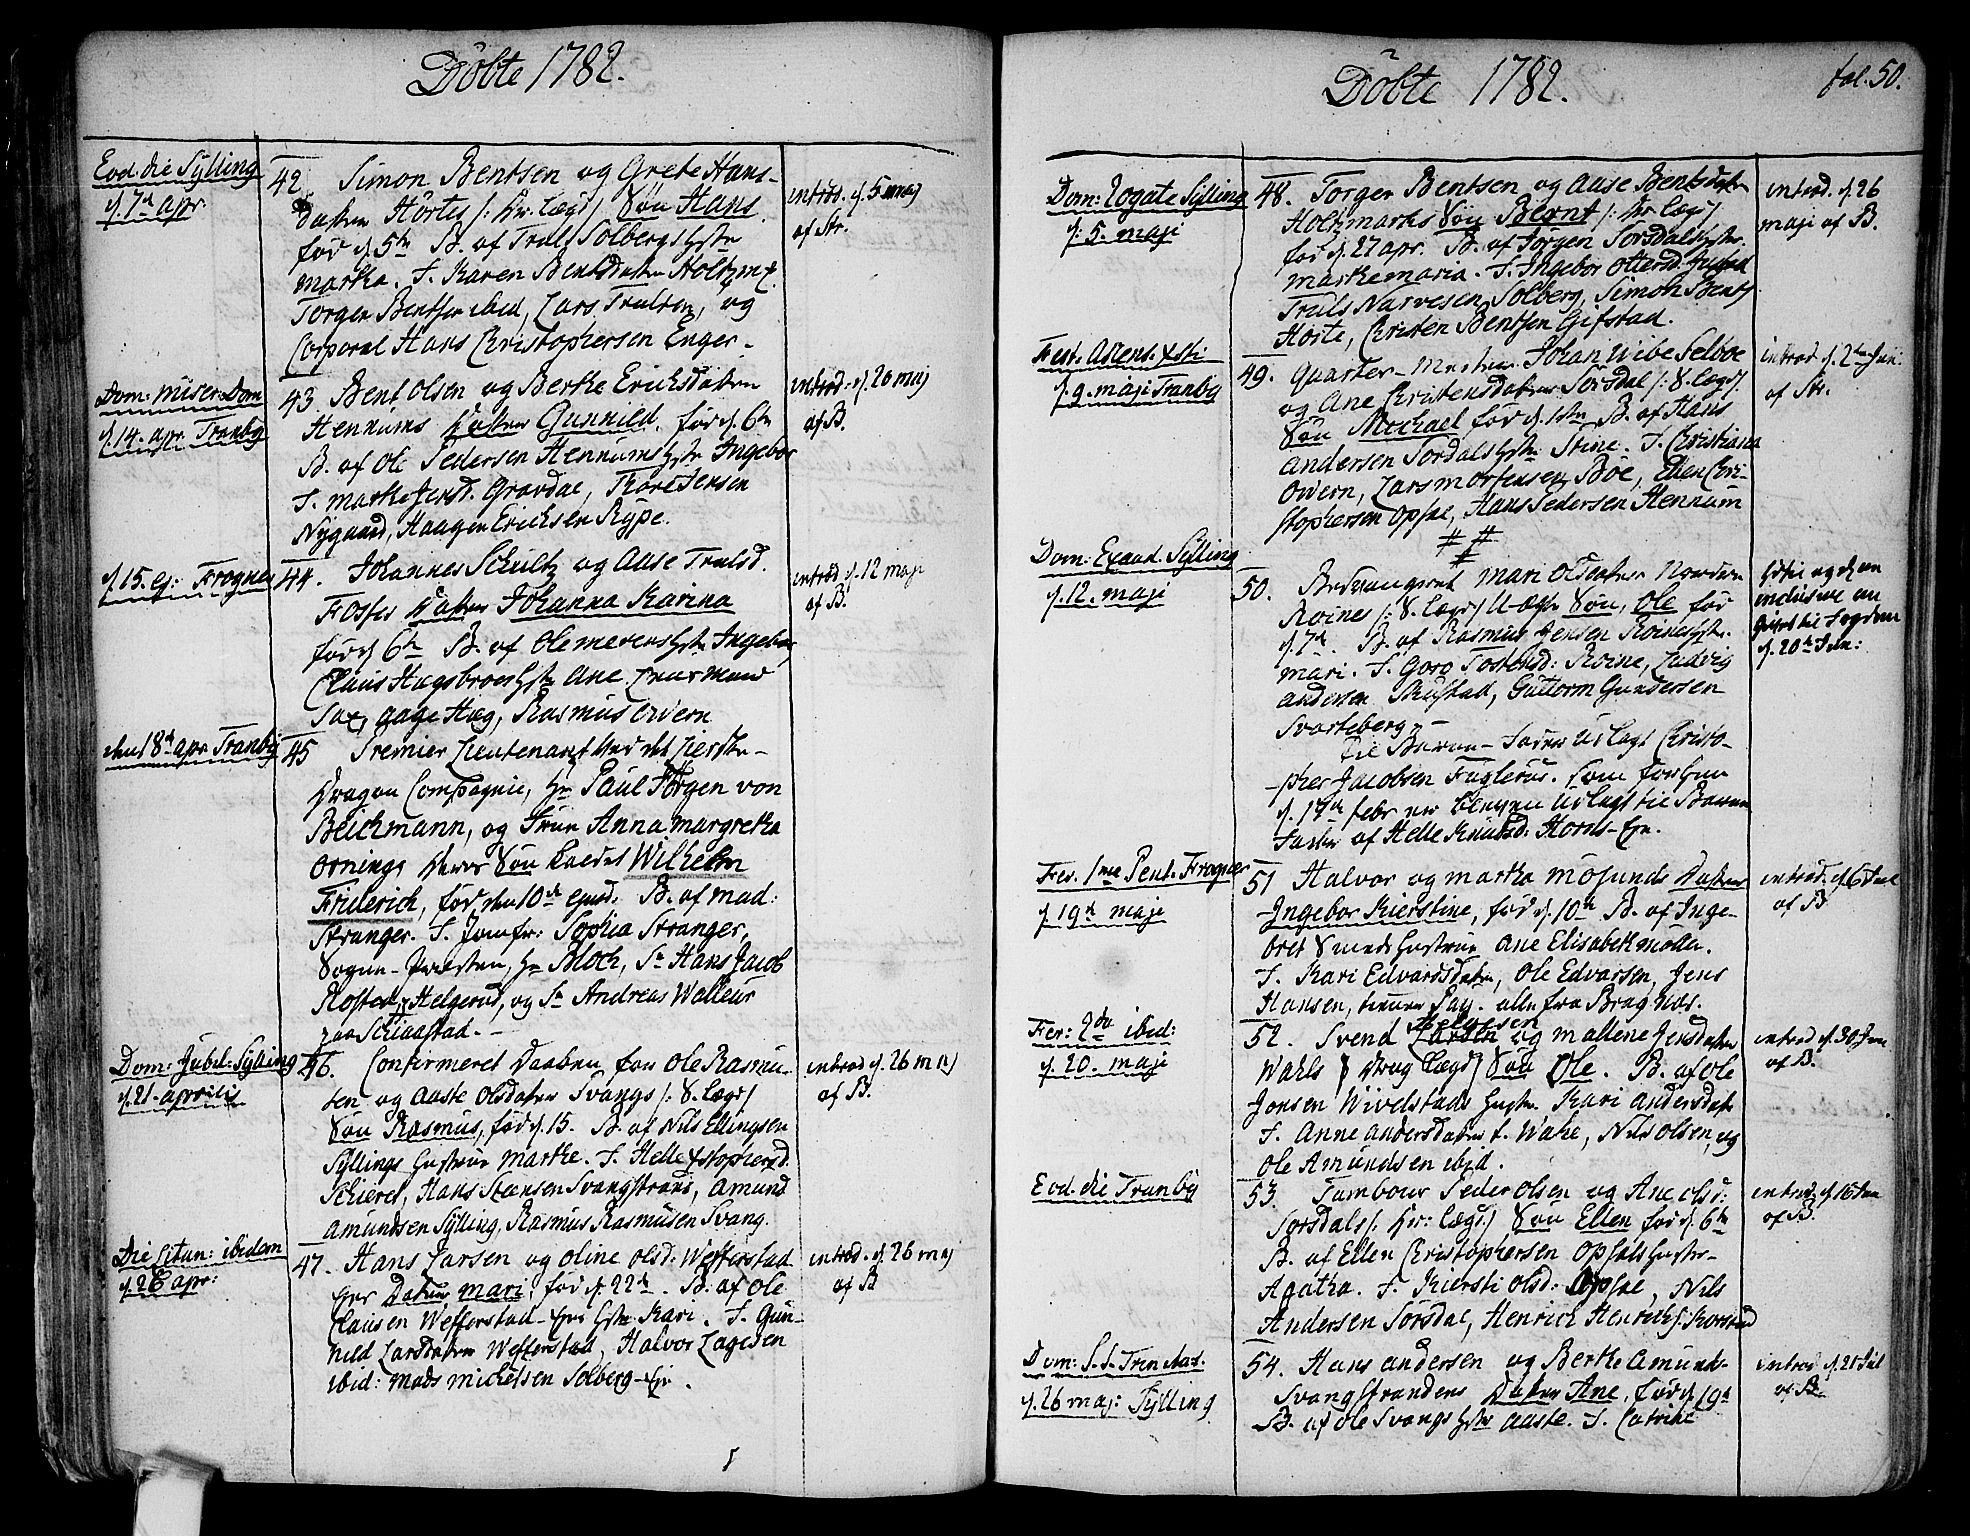 Döbte 1782.
Eod. die Sylling
d. 7de apr.
42. Simon Bentsen og Grete Hans-
datter Hörtes /: Kr. Lægd/ Sön Hans
föd d. 5te B. af Truls Solbergs Hstr
martha. F. Karen Bentsdatter Holtzm:
Torger Bentsen ibid, Lars Trulsen, og
Corporal Hans Christophersen Enger.
introd. d. 5 maj
af Str.
Dom: Miser: Dom
d. 14. apr. Tranby
43. Bent Olsen og Berthe Ericksdatter
Hennums datter Gunnild. föd d. 6te
B. af Ole Pedersen Hennums Hstr Ingebor
F. marthe Jensd. Gravdal, Thore Jensen
Nygaard, Haagen Ericksen Rype.
introd. d. 20 maj
af B.
d. 15. ej: Frogner
44. Johannes Schultz og Aase Trulsd.
Fosses datter Johanna Karina
föd d. 6te B. af Ole mevers Hstr Ingebor,
Claus Hagsbroes Hstr Ane
Sax, aage Hæg, Rasmus overn
introd. d. 12 maji
af B.
den 18de apr Tranby
45 Premier Lieutenant ved det
Dragon Compagnie, Hr Paul Jörgen von
Beichmann, og Frue Anna margretha
Ornings deres Sön kaldet Wilhelm
Friderich, föd den 10de ejusd. B. af mad:
Stranger. F. Jomfr: Sophia Stranger,
Sogne-Præsten, Hr Bloch, Sr Hans Jacob
Helgerud, og Sr Andreas Walleur
paa Schiaastad.
Dom: Jubil: Sylling
d. 21. aprilis
46. Confirmeret Daaben for Ole Rasmu-
sen og Aaste Olsdatter Svangs /: S. Lægd/
Sön Rasmus, föd d. 15. B. af Nils Ellingsen
Syllings Hustrue marthe. F. Helle Xstophersd.
Schieret, Hans Steensen Svangstrand, Amund
Amundsen Sylling, Rasmus Rasmusen Svang.
introd. d. 26 maj
af B.
Die Litan: ibidem
d. 26 apr:
47. Hans Larsen og oline olsd: Wefferstad
Ejer Datter mari, föd d. 22de. B. af Ole
Clausen Wefferstad-Ejer Hstr Kari. F. Gun-
nild Larsdatter Wefferstad, Halvor Lagesen
ibid: mads michelsen Solberg-Ejr.
introd. d. 26 maj
af B
Döbte 1782.
fol. 50.
Dom: Rogate Sylling
d. 5. maji
48. Torger Bentsen og Aase Bentsdatter
Holtzmarks Sön Bernt /: Kr Lægd/
föd d. 27 apr. B. af Jörgen Sørsdals Hstr.
marthe maria. F. Ingebor ottersd.
Truls Narvesen Solberg, Simon Bents
Hörte, Christen Bentsen Gifstad.
introd. d. 26
maji af B.
Fest. Ascens. Xsti
d. 9. maji Tranby
49. Quarter-Mester Johan Wibe Selboe
og Ane Christensdatter Sørsdal /: S. Lægd/
Sön Michael föd d. 1ste B. af Hans
andersen Sørdals Hstr Stine. F. Christiana
Overn, Lars mortensen Böe, Ellen Chri-
stophersen Opsal, Hans Pedersen Hennum
introd d. 2den Jun.
af Str.
# #
#
Dom: Exaud. Sylling
d. 12. maji
50. Besvangret mari olsdatter Norder
Roine /: S. Lægd/ U-ægte Sön, Ole föd
d. 7de. B. af Rasmus Jensen Roines Hstr.
mari. F. Goro Tostensd: Roine, Ludvig
andersen Skustad, Guttorm Gundersen
Svarteberg.
Til Barne-Fader Udlagt Christo-
pher Jacobsen Fuglerud. som forhen
d. 17de febr er bleven Udlagt til Barne
Fader af Helle Knudsd: Horns-Eje.
til Fogden
d. 20de Jun:
Fer. 1me Pent. Frogner
d. 19de maji
51 Halvor og martha mösunds Datter
Ingebor Kierstine, föd d. 10de B. af Inge-
bret Smeds Hustrue Ane Elisabeth möller.
F. Kari Edvardsdatter, Ole Edvarsen, Jens
Hansen, alle fra Bragnæs.
introd. d. 6 Jul
af B
Fer: 2da ibid:
d. 20. maji
52. Svend Larsen og mallene Jensdatter
Wahls / Drag Lægd/ Sön Ole. B. af Ole
Jonsen Wivelstads Hustr. Kari Andersdatter
F. Anne Andersdatter f. Wahl, Nils Olsen, og
Ole Amundsen ibid.
introd d. 30 Jun
af B.
Eod. die Tranby
53. Tambour Peder Olsen og Ane olsd:
Sørsdals /: Kr: Lægd/ Sön Ellen föd d. 6te
B. af Ellen Christophersen Opsals Hustr-
Agatha. F. Kiersti Olsd: Opsal, Nils
Andersen Sørsdal, Henrich Henrichs: Korstad
introd. d. 16 Jun
af B.
Dom: S.S. Trinitat.
d. 26 maj: Sylling
54. Hans andersen og Berthe Amunds-
Svangstrandens Datter Ane, föd d. 19de
B. af Ole Svangs Hstr Aaste. F. Cathrine
introd d. 21 Jul
af B